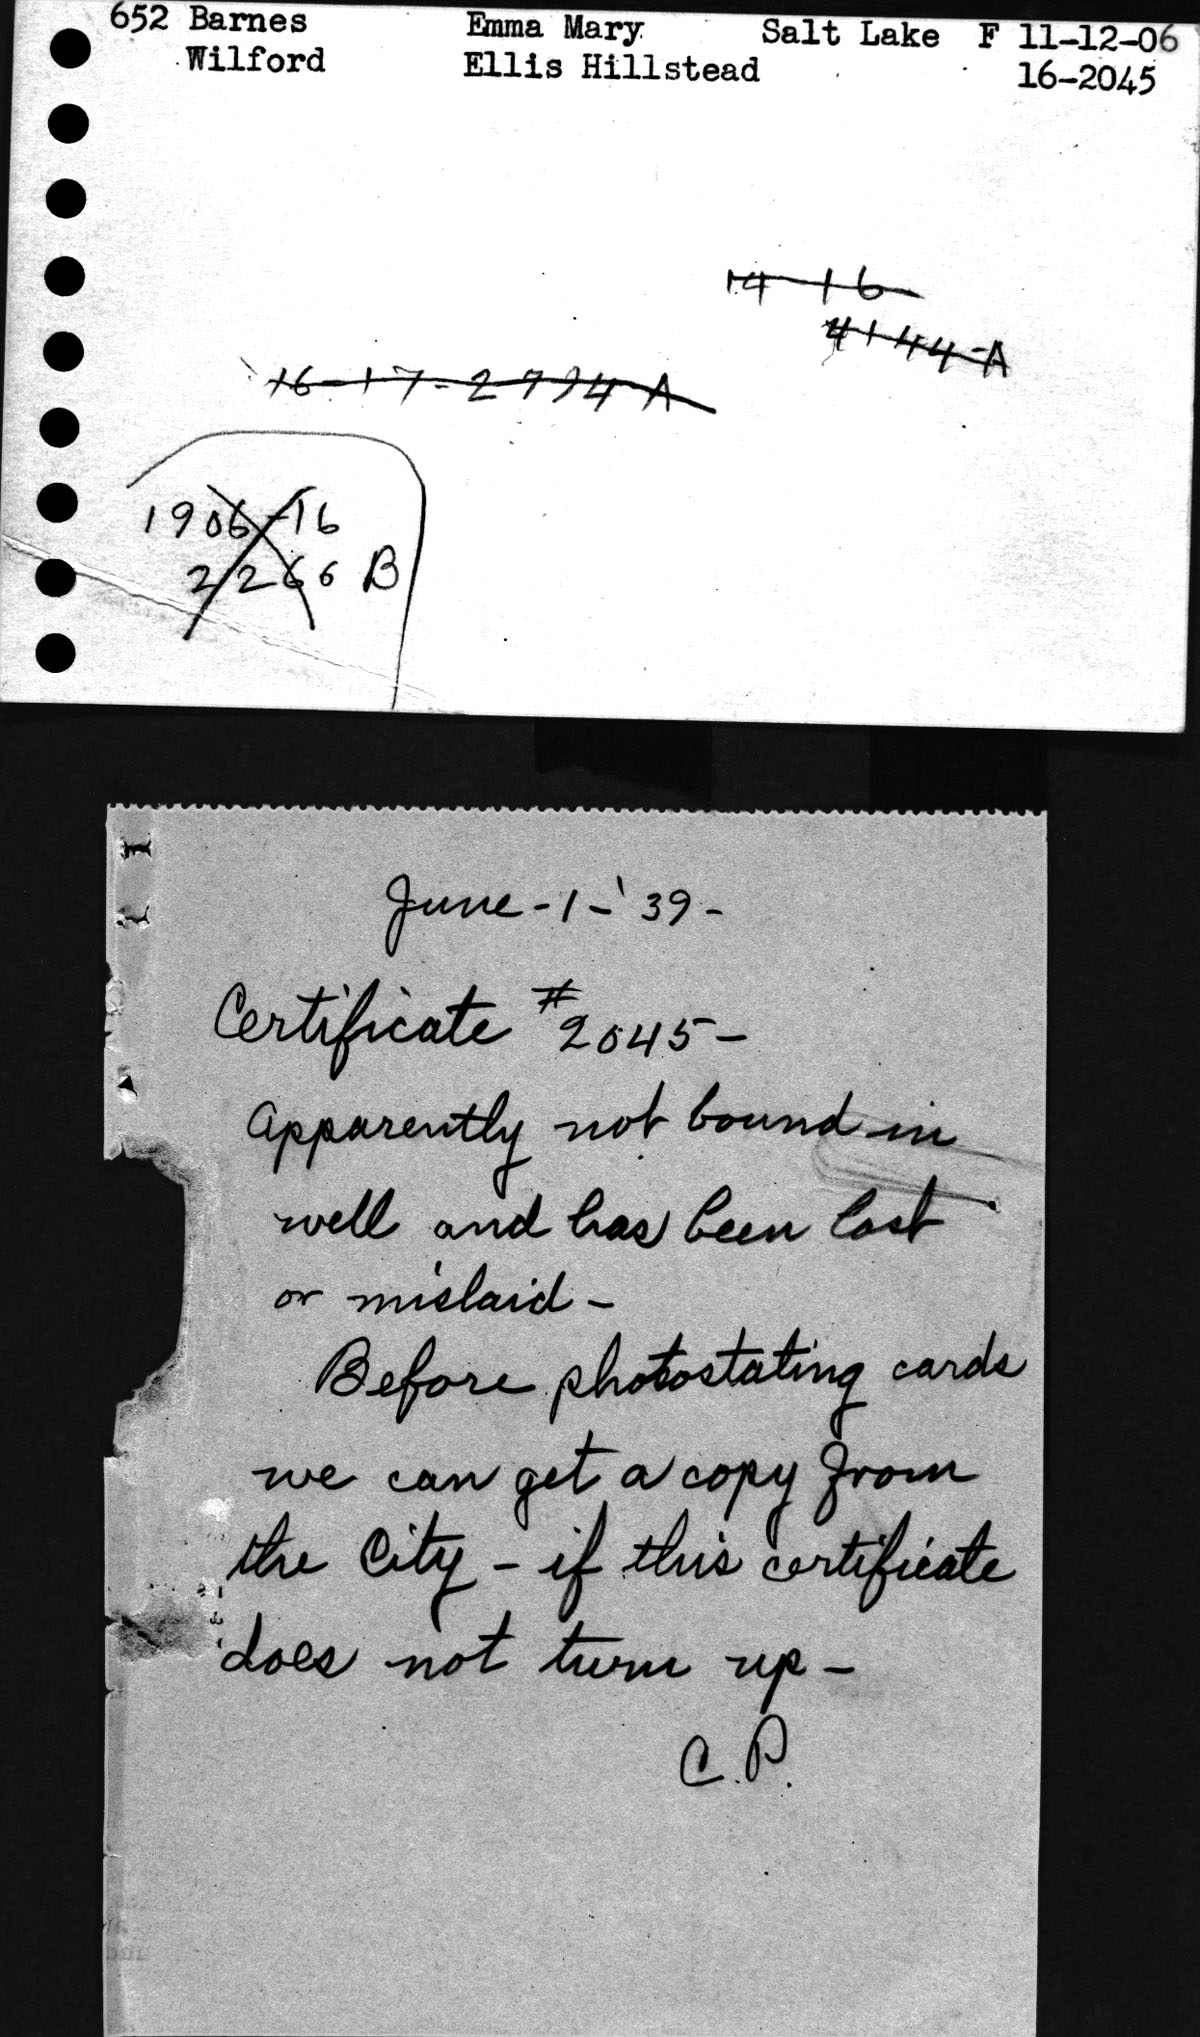 652 Barnes Emma Mary Salt Lake F 11-12-06
Wilford Ellis Hillstead 16-2045
14-16
4144-A
16-17-2794 A
1906-16
2266 B
June-1-'39-
Certificate #2045-
Apparently not bound in
well and has been lost
or mislaid-
Before photostating cards
we can get a copy from
the City - if this certificate
does not turn up-
C.P.